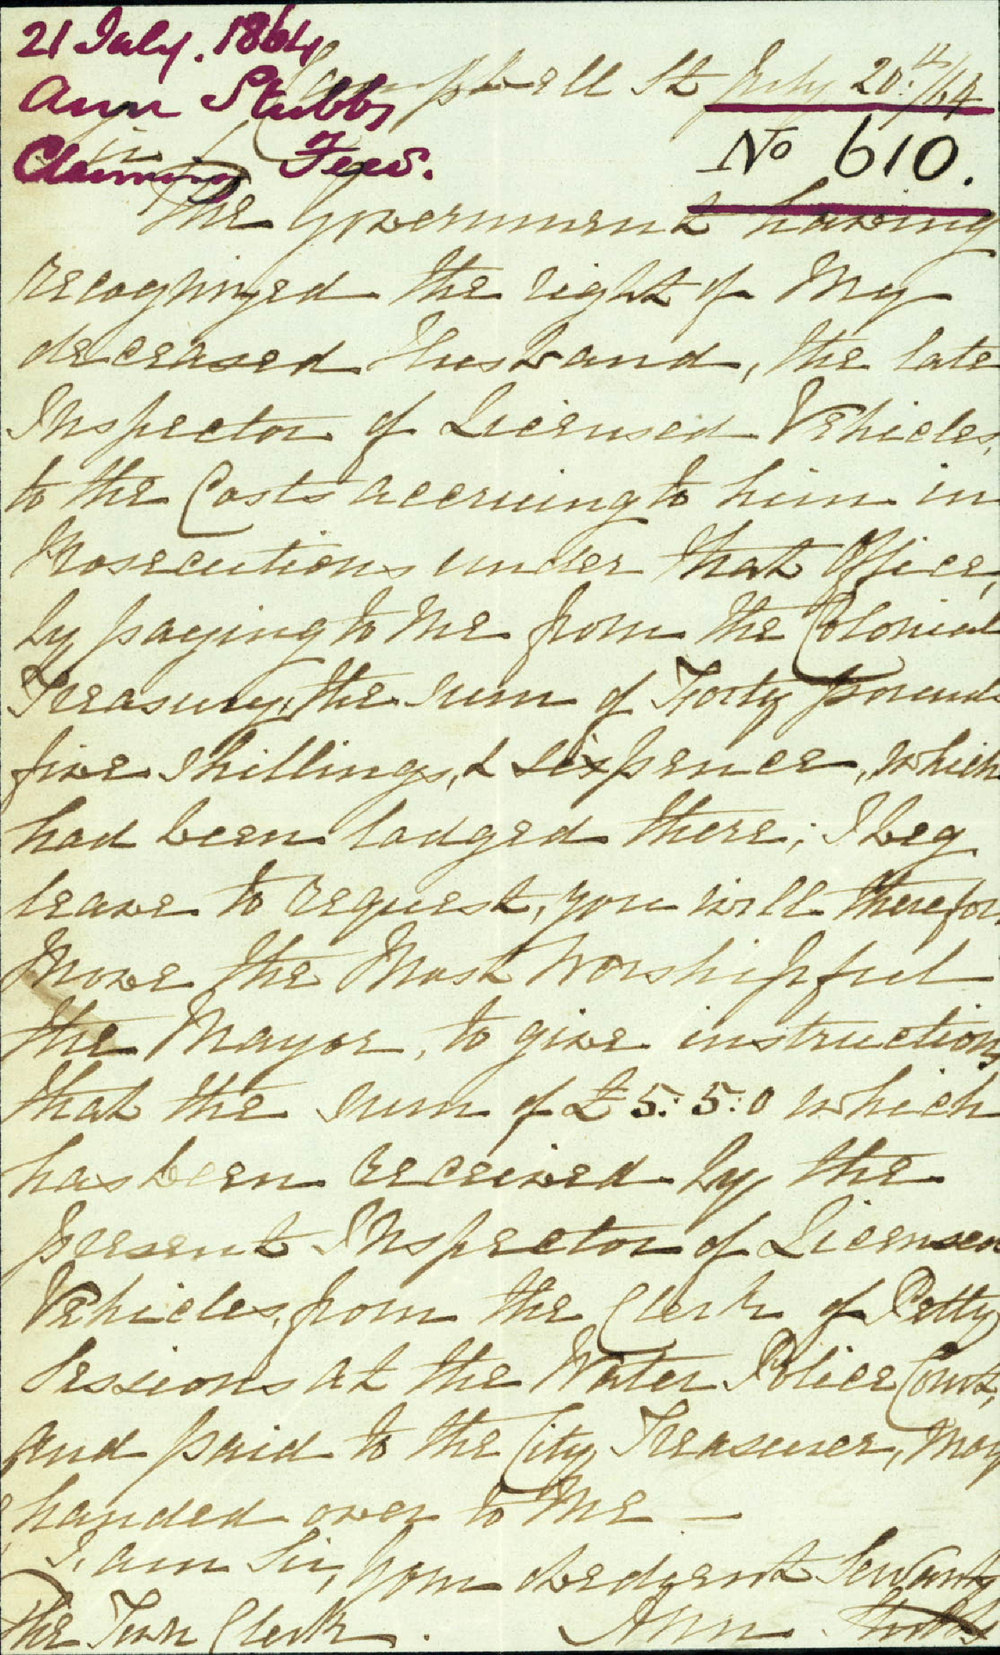 21 July. 1864
Ann Stubbs
Claiming Fees.
Campbell St July 20th/64
No 610.
Sir
The Government having
recognized the right of My
deceased Husband, the late
Inspector of Licensed Vehicles,
to the Costs accruing to him in
Prosecutions under that Office,
by paying to Me from the Colonial
Treasury, the sum of Forty pounds
five shillings, & sixpence, which
had been lodged there; I beg
leave to request, you will therefor
Move the Most Worshipful
the Mayor, to give instructions
that the sum of £5:5:0 which
has been received by the
present Inspector of Licensed
Vehicles, from the Clerk of Petty
Sessions at the Water Police Court,
and paid to the City Treasurer, May
handed over to Me —
I am Sir, Your obedient Servant
Ann Stubbs
The Town Clerk.